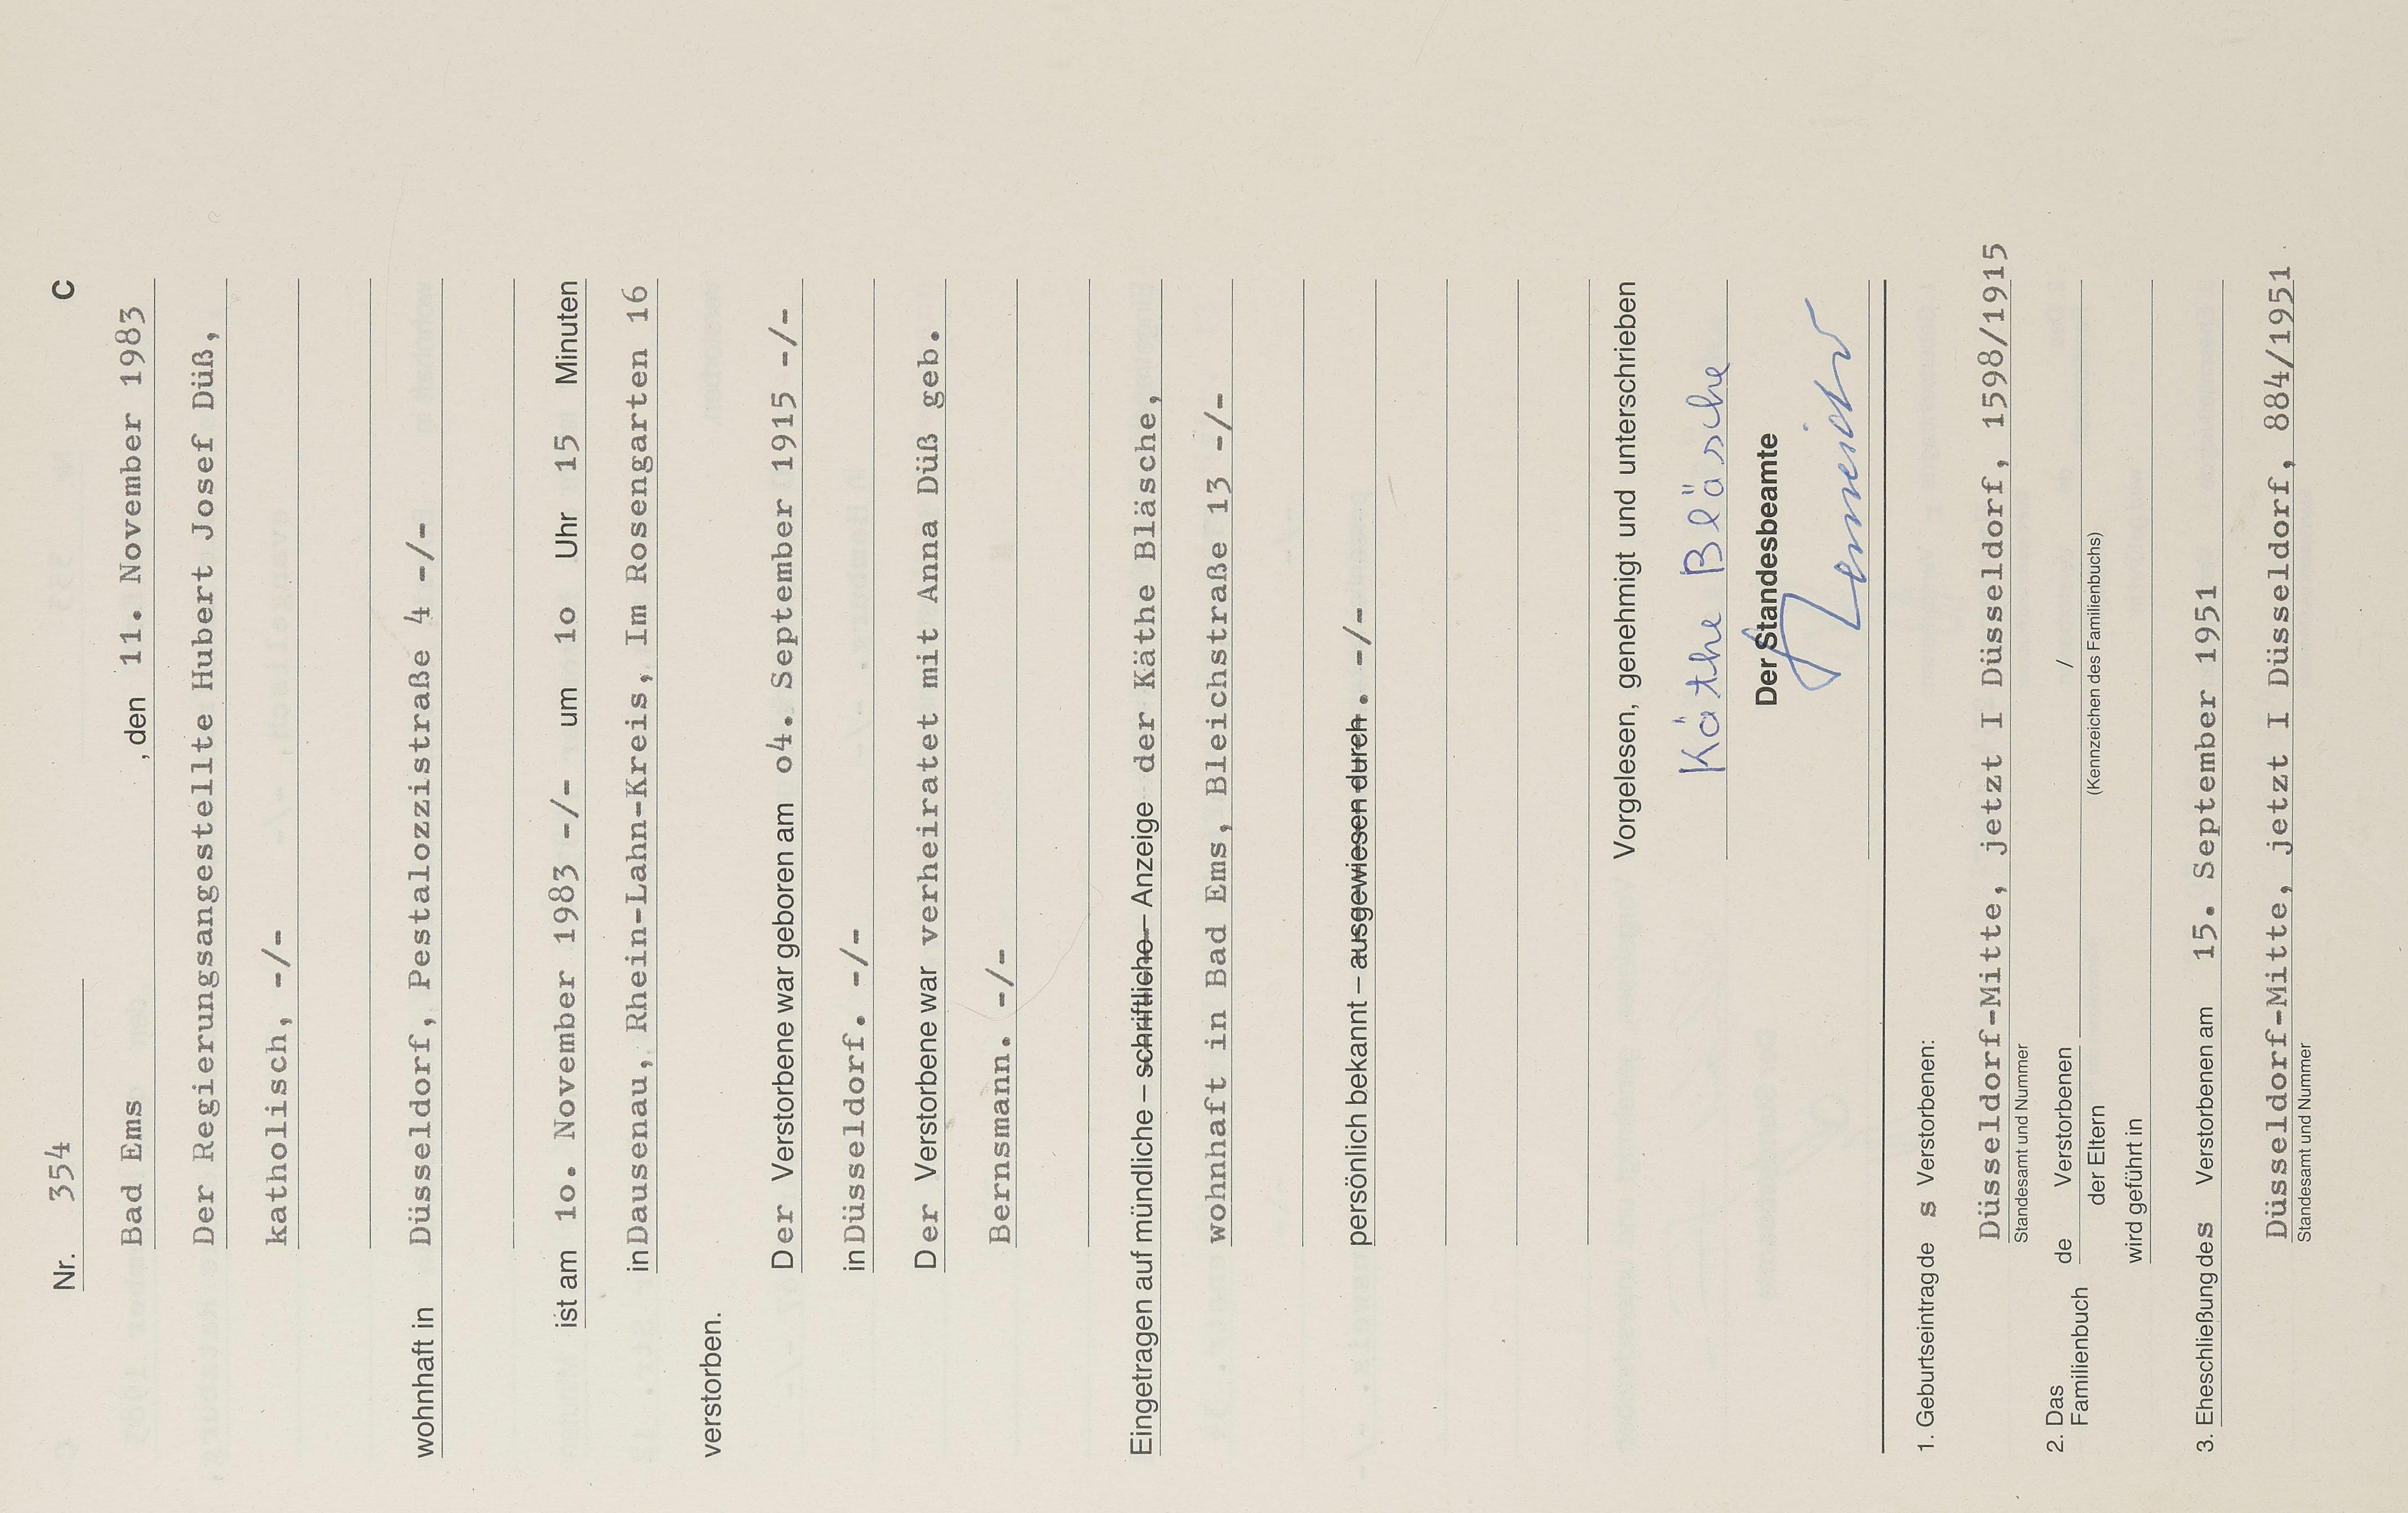 Nr. 354 C
Bad Ems , den 11. November 1983
Der Regierungsangestellte Hubert Josef Düß,
katholisch, -/-
wohnhaft in Düsseldorf, Pestalozzistraße 4 -/-
ist am 1o. November 1983 -/- um 1o Uhr 15 Minuten
in Dausenau, Rhein-Lahn-Kreis, Im Rosengarten 16
verstorben.
Der Verstorbene war geboren am o4. September 1915 -/-
in Düsseldorf. -/-
Der Verstorbene war verheiratet mit Anna Düß geb.
Bernsmann. -/-
Eingetragen auf mündliche – schriftliche – Anzeige der Käthe Bläsche,
wohnhaft in Bad Ems, Bleichstraße 13 -/-
persönlich bekannt – ausgewiesen durch . -/-
Vorgelesen, genehmigt und unterschrieben
Käthe Bläsche
Der Standesbeamte
1. Geburtseintrag de s Verstorbenen:
Düsseldorf-Mitte, jetzt I Düsseldorf, 1598/1915
Standesamt und Nummer
2. Das Familienbuch de Verstorbenen /
der Eltern (Kennzeichen des Familienbuchs)
wird geführt in
3. Eheschließung des Verstorbenen am 15. September 1951
Düsseldorf-Mitte, jetzt I Düsseldorf, 884/1951
Standesamt und Nummer